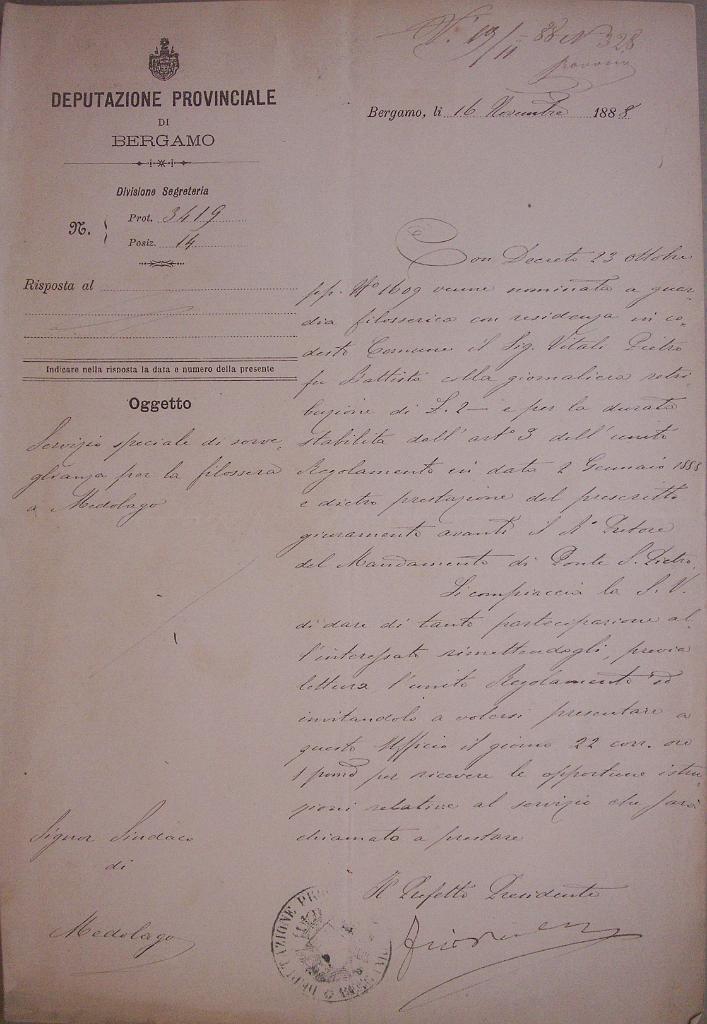 V.° 19/11 88 N 328
DEPUTAZIONE PROVINCIALE
DI
BERGAMO
Bergamo, li 16 Novembre 1888
Divisione Segreteria
N. Prot. 3419
Posiz. 14
Risposta al
Indicare nella risposta la data e numero della presente
Oggetto
Servizio speciale di sorve-
glianza per la filossera
a Medolago
Con Decreto 23 ottobre
pp. N° 1609 venne nominato a guar-
dia filosserica con residenza in co-
desto Comune il Sig. Vitali Pietro
fu Battista colla giornaliera retri
buzione di L. 2 — e per la durata
stabilita dall' art° 3 dell' unito
Regolamento in data 2 Gennaio 1888
e dietro prestazione del prescritto
giuramento avanti il R° Pretore
del Mandamento di Ponte S. Pietro.
Si compiaccia la S. V.
di dare di tanto partecipazione al-
l'interessato rimettendogli, previa
lettura l'unito Regolamento ed
invitandolo a volersi presentare a
questo Ufficio il giorno 22 corr. ore
1 pomd per ricevere le opportune istru
zioni relative al servizio che sarà
chiamato a prestare
Signor Sindaco
di
Medolago
Il Prefetto Presidente
DEPUTAZIONE PRO